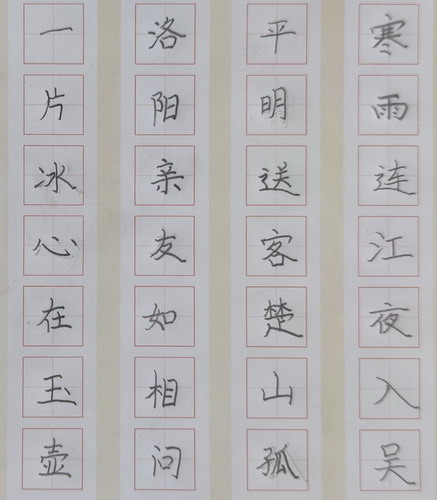 寒雨连江夜入吴
平明送客楚山孤
洛阳亲友如相问
一片冰心在玉壶